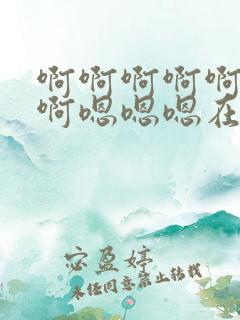 啊啊啊啊啊
啊嗯嗯嗯在
宓盈婷
未经同意禁止转载